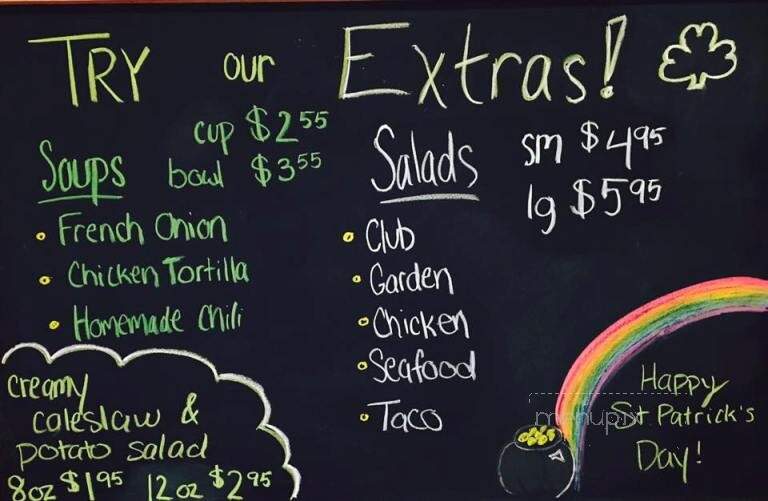 TRY our Extras!
Soups cup $2.55
bowl $3.55
• French Onion
• Chicken Tortilla
• Homemade Chili
Salads sm $4.95
lg $5.95
• Club
• Garden
• Chicken
• Seafood
• Taco
creamy
coleslaw &
potato salad
8oz $1.95 12oz $2.95
Happy
St Patrick's
Day!